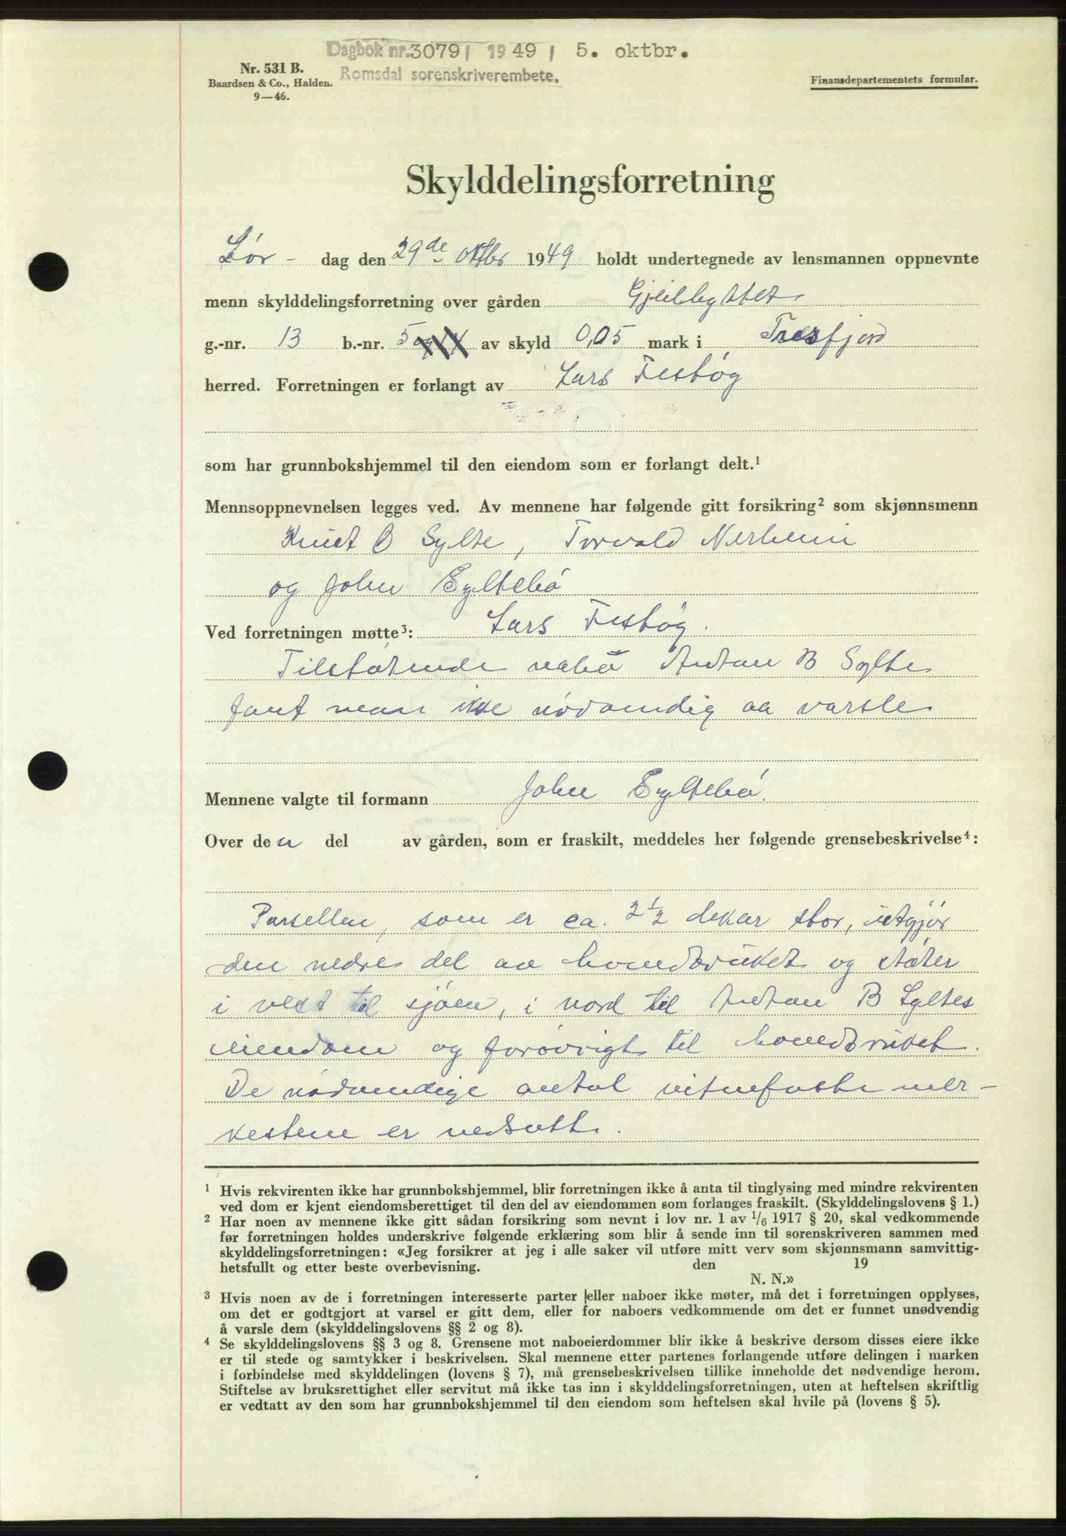 Dagbok nr. 3079 / 1949 / 5. oktbr.
Romsdal sorenskriverembete.
Nr. 531 B.
Baardsen & Co., Halden.
9—46.
Finansdepartementets formular.
Skylddelingsforretning
Lør- dag den 29de oktbr 1949 holdt undertegnede av lensmannen oppnevnte
menn skylddelingsforretning over gården
g.-nr. 13 b.-nr. 5 av skyld 0,05 mark i Tresfjord
herred. Forretningen er forlangt av Lars Festøg
som har grunnbokshjemmel til den eiendom som er forlangt delt.¹
Mennsoppnevnelsen legges ved. Av mennene har følgende gitt forsikring² som skjønnsmenn
Knut O Sylte, Torvald Nerheim
og John Syltebø
Ved forretningen møtte³: Lars Festøg.
Tilstøtende nabo Anton B Sylte
fant man ikke nødvendig aa varsle
Mennene valgte til formann John Syltebø.
Over den del av gården, som er fraskilt, meddeles her følgende grensebeskrivelse⁴:
Parsellen, som er ca. 2½ dekar stor, utgjør
den nedre del av hovedbruket og støter
i vest til sjøen, i nord til Anton B Syltes
eiendom og forøvrigt til hovedbruket.
De nødvendige antal vitnefaste mer-
kestene er nedsatt.
¹ Hvis rekvirenten ikke har grunnbokshjemmel, blir forretningen ikke å anta til tinglysing med mindre rekvirenten
ved dom er kjent eiendomsberettiget til den del av eiendommen som forlanges fraskilt. (Skylddelingslovens § 1.)
² Har noen av mennene ikke gitt sådan forsikring som nevnt i lov nr. 1 av 1/6 1917 § 20, skal vedkommende
før forretningen holdes underskrive følgende erklæring som blir å sende inn til sorenskriveren sammen med
skylddelingsforretningen: «Jeg forsikrer at jeg i alle saker vil utføre mitt verv som skjønnsmann samvittig-
hetsfullt og etter beste overbevisning. den 19
N. N.»
³ Hvis noen av de i forretningen interesserte parter eller naboer ikke møter, må det i forretningen opplyses,
om det er godtgjort at varsel er gitt dem, eller for naboers vedkommende om det er funnet unødvendig
å varsle dem (skylddelingslovens §§ 2 og 8).
⁴ Se skylddelingslovens §§ 3 og 8. Grensene mot naboeierdommer blir ikke å beskrive dersom disses eiere ikke
er til stede og samtykker i beskrivelsen. Skal mennene etter partenes forlangende utføre delingen i marken
i forbindelse med skylddelingen (lovens § 7), må grensebeskrivelsen tillike inneholde det nødvendige herom.
Stiftelse av bruksrettighet eller servitut må ikke tas inn i skylddelingsforretningen, uten at heftelsen skriftlig
er vedtatt av den som har grunnbokshjemmel til den eiendom som heftelsen skal hvile på (lovens § 5).